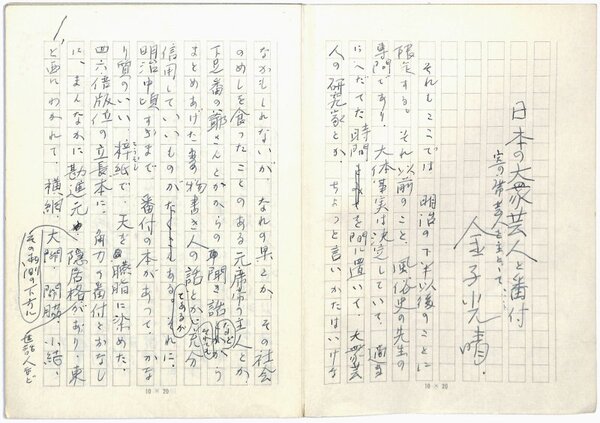 日本の大衆芸人と番付
金子光晴
それもここでは、明治の下半以後のことに
限定する。それ以前のこと、風俗史の先生の
専門であり、大体事実は決定していて、適当
にへだてた時間を間に置いて、大衆芸
人の研究家とか、ちょっと言いかたはいけな
なかもしれないが、なれの果とか、その社会
のめしを食ったことのある元席亭の主人とか、
下足番の爺さんとかからの聞き話などから
まとめあげた物書き人の話とかで、それも充分
信用していいものがあるが、それに、
明治中頃すぎまで番付の本があって、かな
り質のいい、粹紙で、天を臙脂に染めた、
四六倍版位の立長本に、角力の番付とかなし
に、まんなかに勘進元、隠居格があり、東
と西にわかれて、横綱、大関、関脇、小結、
その両側の下方に
世話人など
1
10×20
10×20